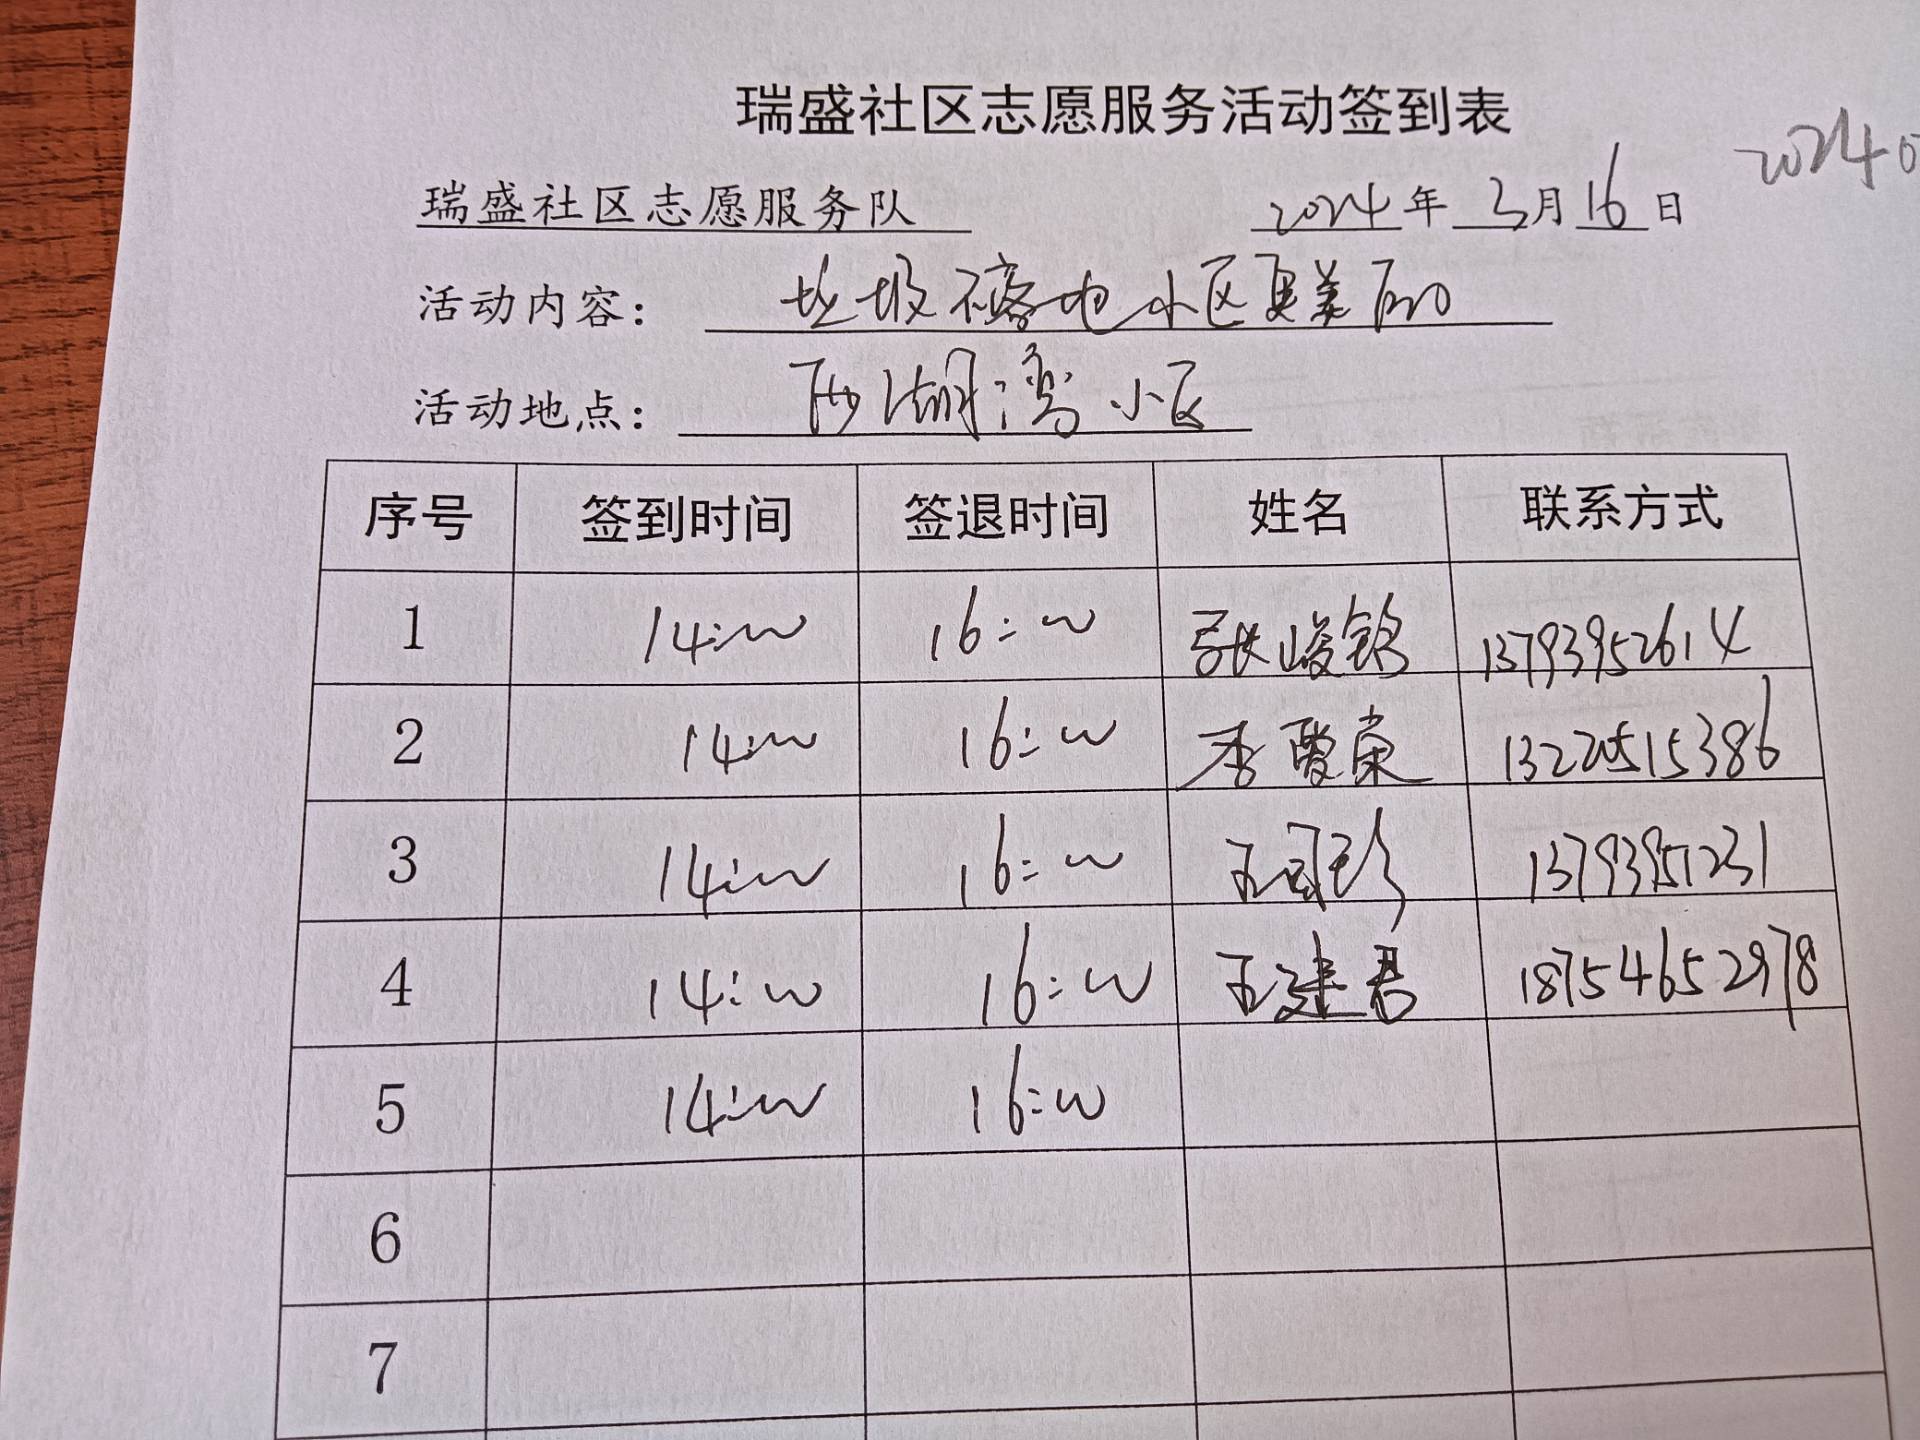 瑞盛社区志愿服务活动签到表
20240
瑞盛社区志愿服务队 2024年 3月16日
活动内容: 垃圾不落地小区更美丽
活动地点: 西湖湾小区
序号 签到时间 签退时间 姓名 联系方式
1 14:00 16:00 张峻铭 13793952614
2 14:00 16:00 李 荣 13220515386
3 14:00 16:00 王 珍 13793951231
4 14:00 16:00 王建君 18754652978
5 14:00 16:00
6
7